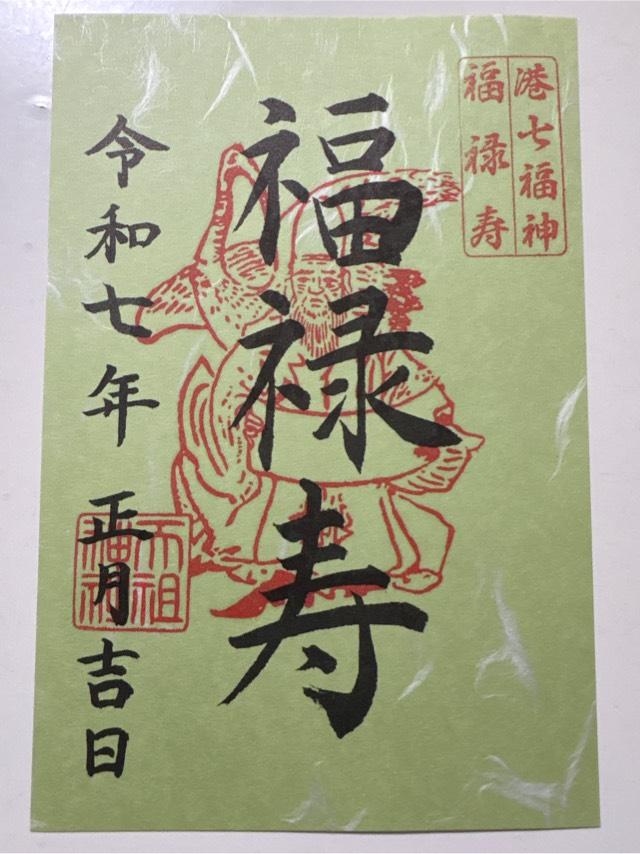 港七福神
福禄寿
福禄寿
令和七年 正月吉日
天祖